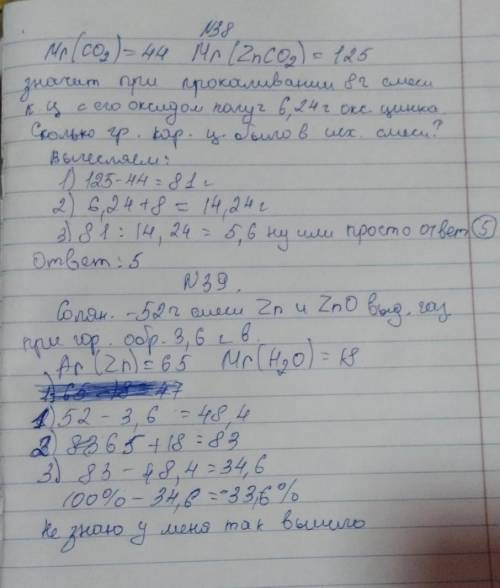 N38
Mr(CO2)=44 Mr(ZnCO2)=125
значит при прокаливании 8г смеси
к. ц с его оксидом получ 6,24 г окс. цинка.
Сколько гр. кар. ц. было в исх. смеси?
Вычесляем:
1) 125-44=81 г
2) 6,24+8=14,24г
3) 81:14,24=5,6 ну или просто ответ 5
Ответ: 5
N39.
Солян. -52г смеси Zn и ZnO выд. газ
при гор. обр. 3,6 г в.
Ar(Zn)=65 Mr(H2O)=18
1) 52-3,6=48,4
2) 65+18=83
3) 83-48,4=34,6
100%-34,6=-33,6%
Не знаю у меня так вышло